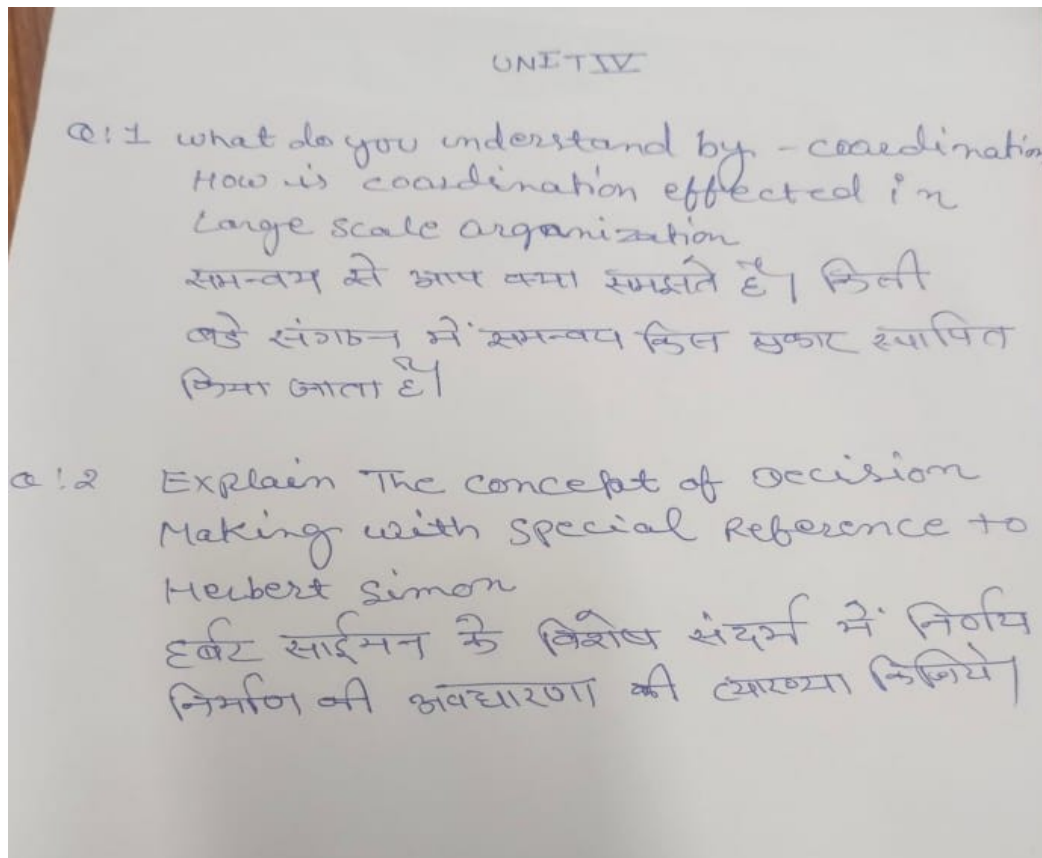 UNIT IV
Q:1 what do you understand by - coordination
How is coordination effected in
Large scale organization
समन्वय से आप क्या समझते है। किसी
बडे संगठन में समन्वय किस प्रकार स्थापित
किया जाता है।
Q:2 Explain The concept of Decision
Making with special Reference to
Herbert Simon
हर्बट साईमन के विशेष संदर्भ में निर्णय
निर्माण की अवधारणा की व्याख्या किजिये।